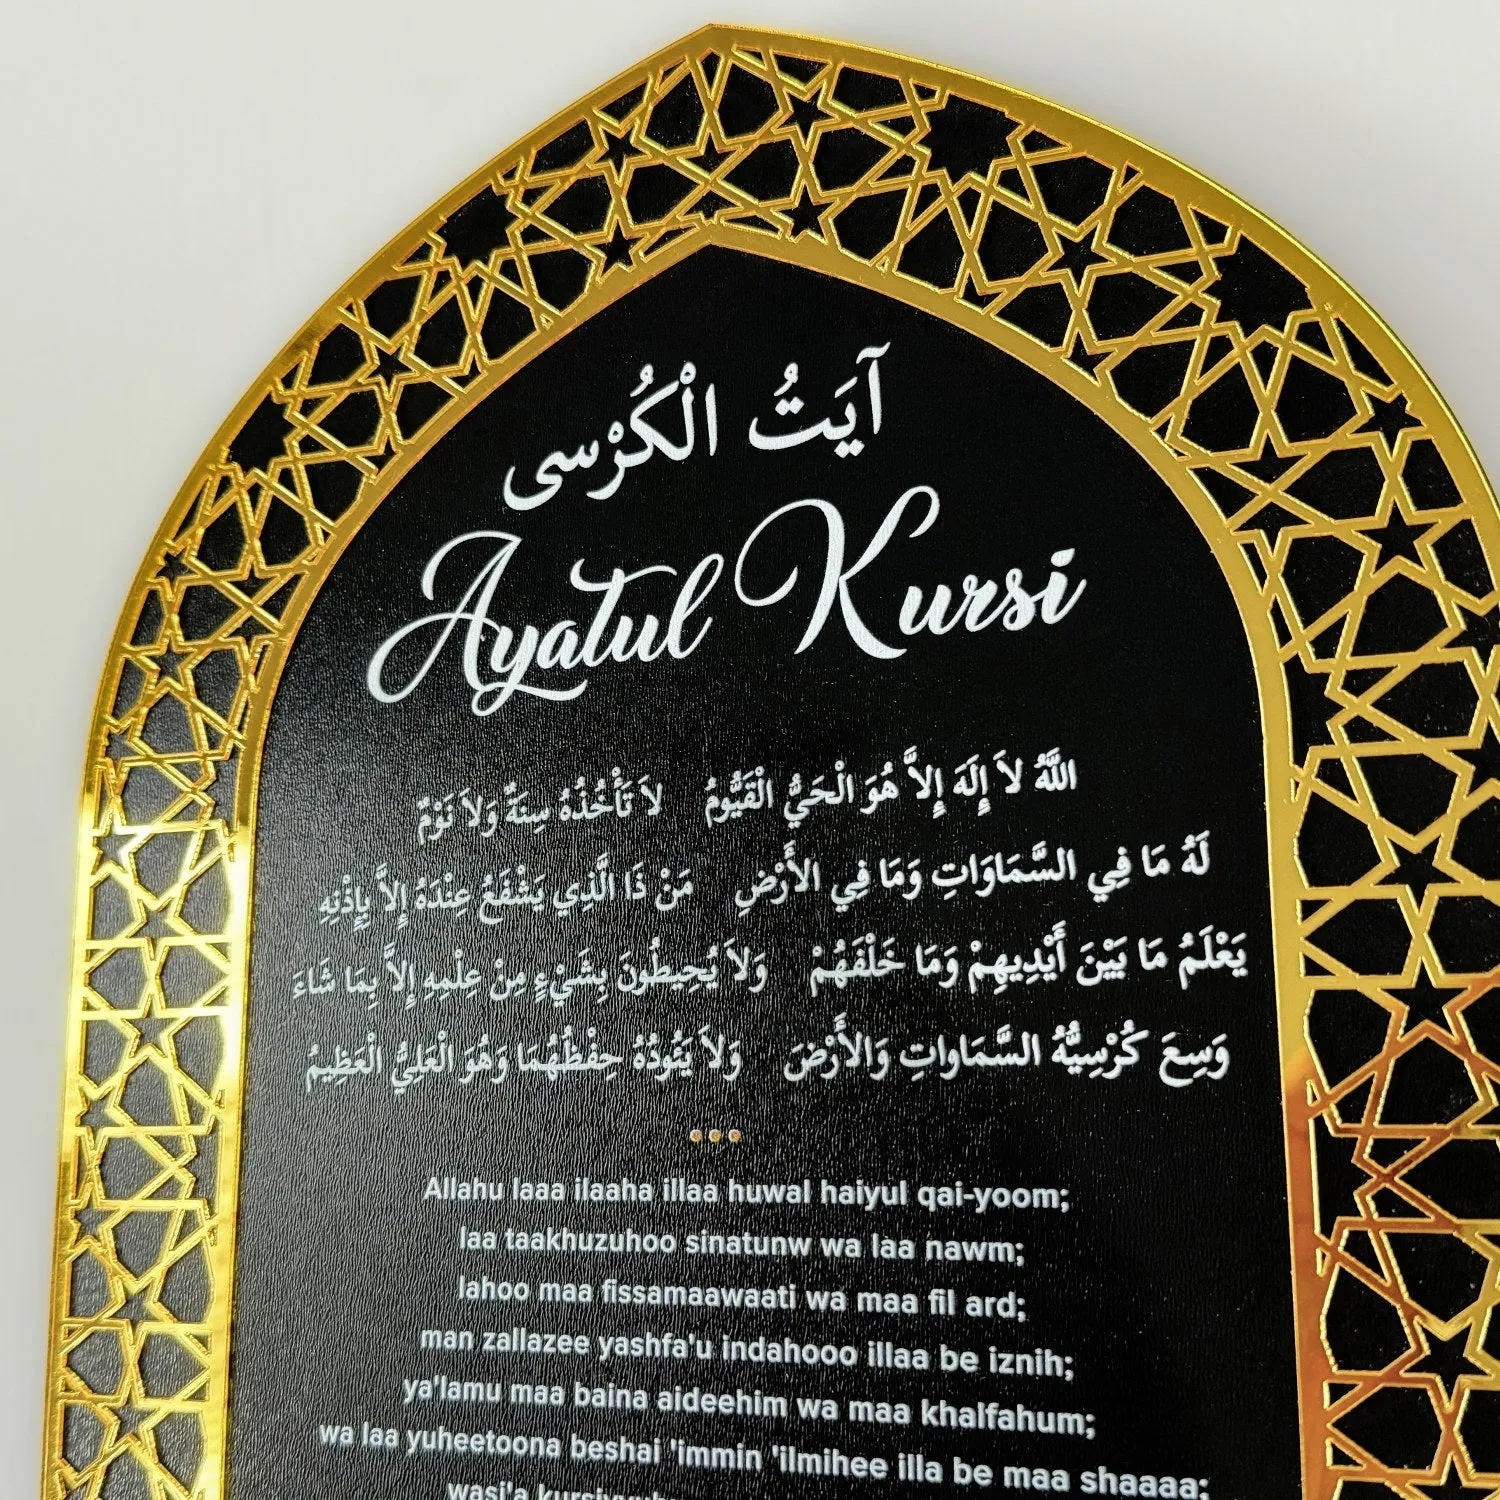 آيَتُ الْكُرْسى
Ayatul Kursi
اللَّهُ لاَ إِلَهَ إِلاَّ هُوَ الْحَيُّ الْقَيُّومُ لاَ تَأْخُذُهُ سِنَةٌ وَلاَ نَوْمٌ
لَهُ مَا فِي السَّمَاوَاتِ وَمَا فِي الأَرْضِ مَنْ ذَا الَّذِي يَشْفَعُ عِنْدَهُ إِلاَّ بِإِذْنِهِ
يَعْلَمُ مَا بَيْنَ أَيْدِيهِمْ وَمَا خَلْفَهُمْ وَلاَ يُحِيطُونَ بِشَيْءٍ مِنْ عِلْمِهِ إِلاَّ بِمَا شَاءَ
وَسِعَ كُرْسِيُّهُ السَّمَاواتِ وَالأَرْضَ وَلاَ يَئُودُهُ حِفْظُهُمَا وَهُوَ الْعَلِيُّ الْعَظِيمُ
Allahu laaa ilaaha illaa huwal haiyul qai-yoom;
laa taakhuzuhoo sinatunw wa laa nawm;
lahoo maa fissamaawaati wa maa fil ard;
man zallazee yashfa'u indahooo illaa be iznih;
ya'lamu maa baina aideehim wa maa khalfahum;
wa laa yuheetoona beshai 'immin 'ilmihee illa be maa shaaaa;
wasi'a